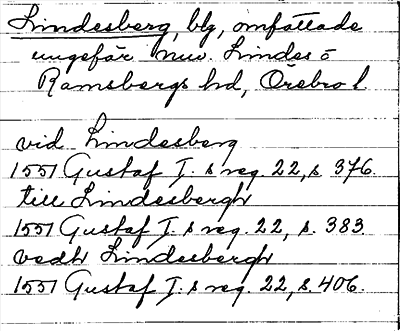 Lindesberg, blg, omfattade
ungefär nuv. Lindes o
Ramsbergs hd, Örebro l
vid Lindesberg
1551 Gustaf I. s reg. 22, s. 376.
till Lindesbergh
1551 Gustaf I. s reg. 22, s. 383
vedh Lindesbergh
1551 Gustaf I. s reg. 22, s. 406.